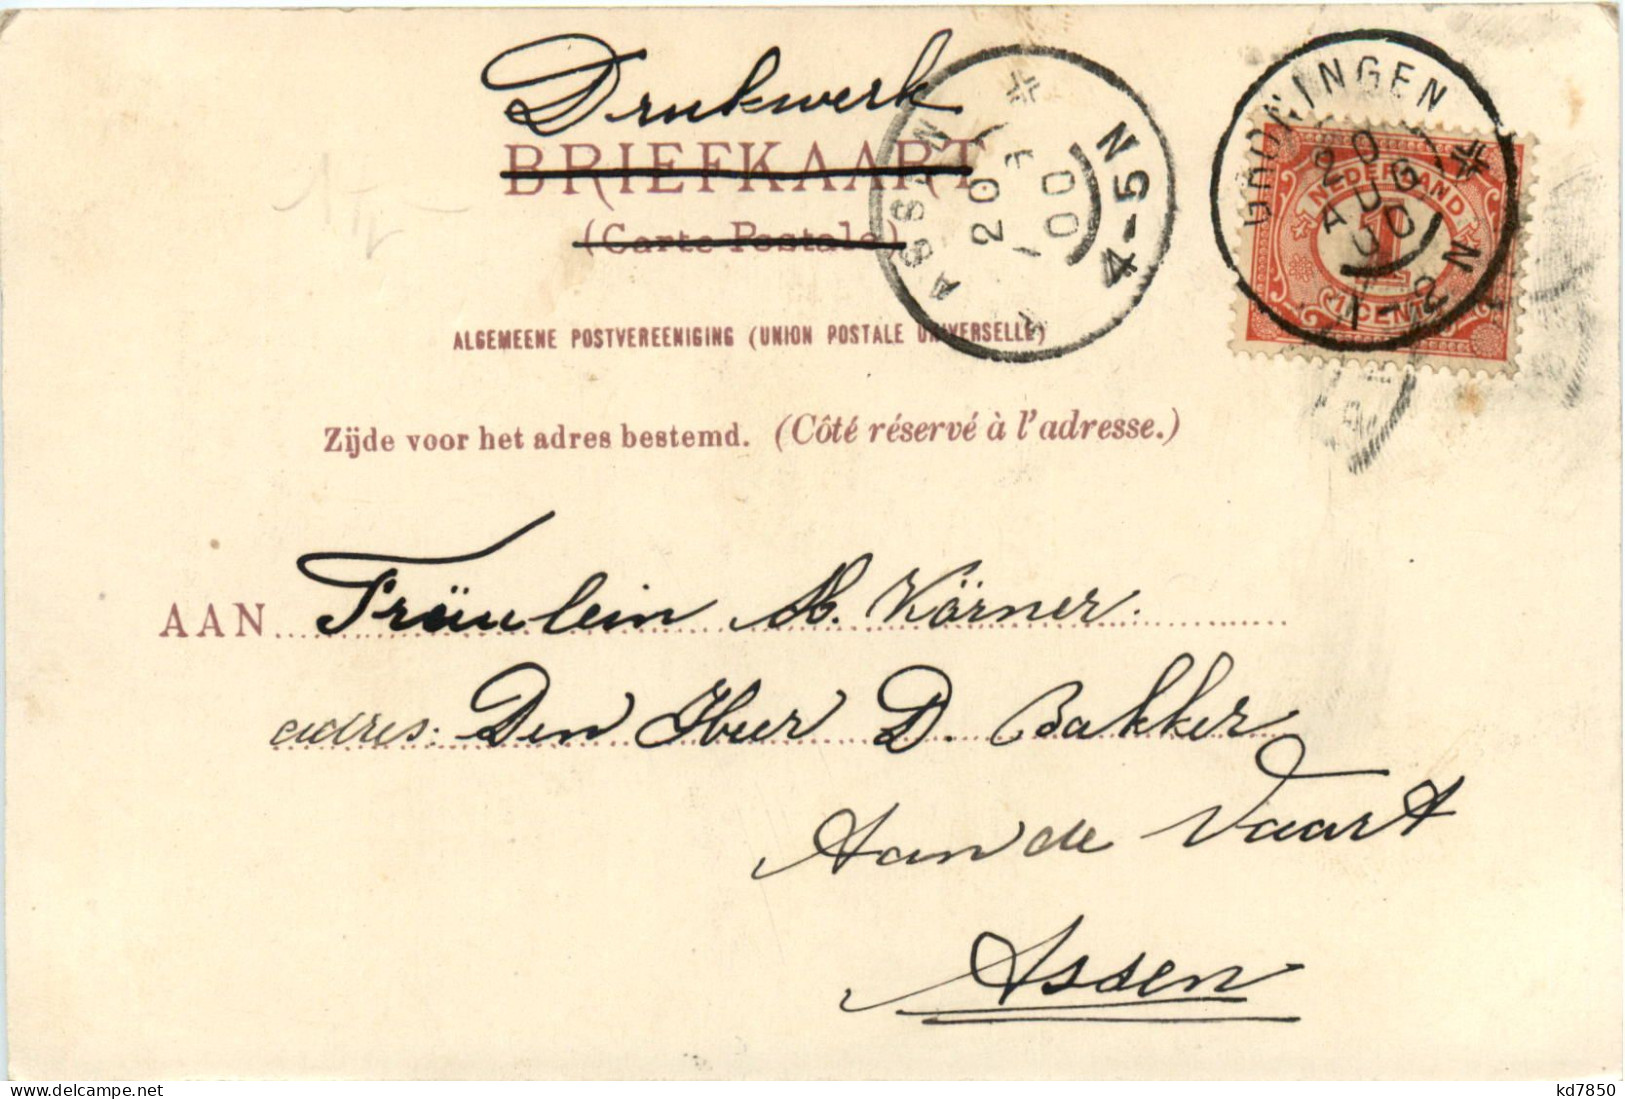 Drukwerk
BRIEFKAART
(Carte Postale)
ALGEMEENE POSTVEREENIGING (UNION POSTALE UNIVERSELLE)
Zijde voor het adres bestemd. (Côté réservé à l'adresse.)
AAN Fräulein M. Körner.
adres: Den Heer D. Bakker
Aan de Vaart
Assen
ASSEN
20
00
4-5N
GRONINGEN
20 AUG 00
1-2N
NEDERLAND
1
CENT
www.delcampe.net
kd7850